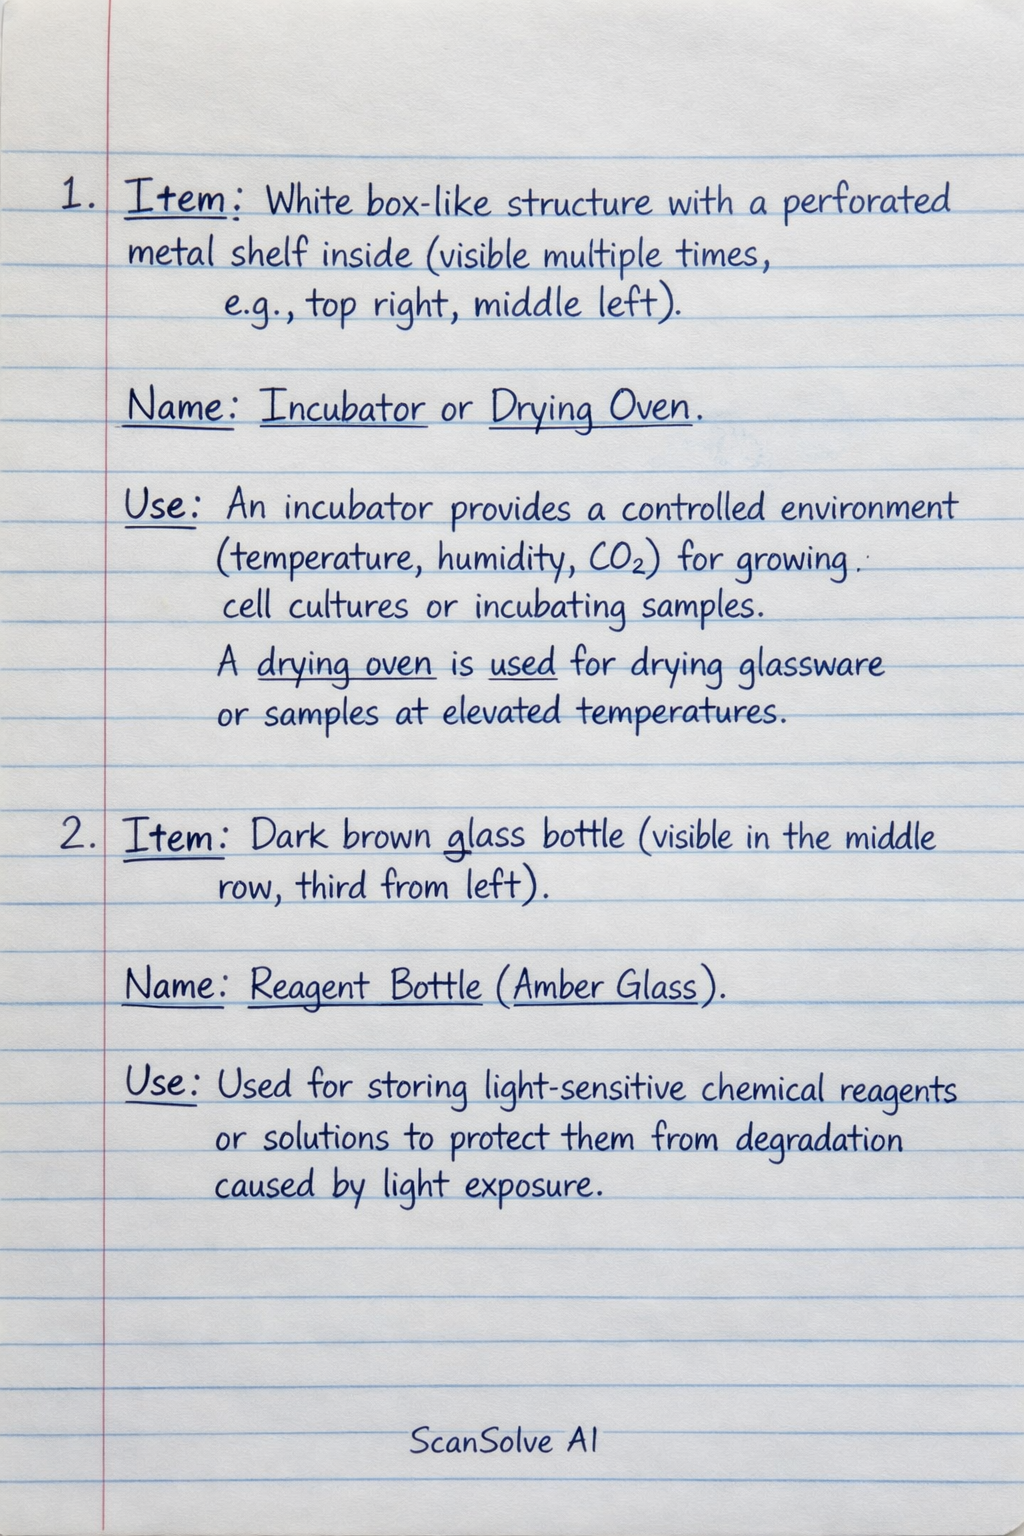 1. Item: White box-like structure with a perforated
metal shelf inside (visible multiple times,
e.g., top right, middle left).
Name: Incubator or Drying Oven.
Use: An incubator provides a controlled environment
(temperature, humidity, CO₂) for growing.
cell cultures or incubating samples.
A drying oven is used for drying glassware
or samples at elevated temperatures.
2. Item: Dark brown glass bottle (visible in the middle
row, third from left).
Name: Reagent Bottle (Amber Glass).
Use: Used for storing light-sensitive chemical reagents
or solutions to protect them from degradation
caused by light exposure.
ScanSolve AI